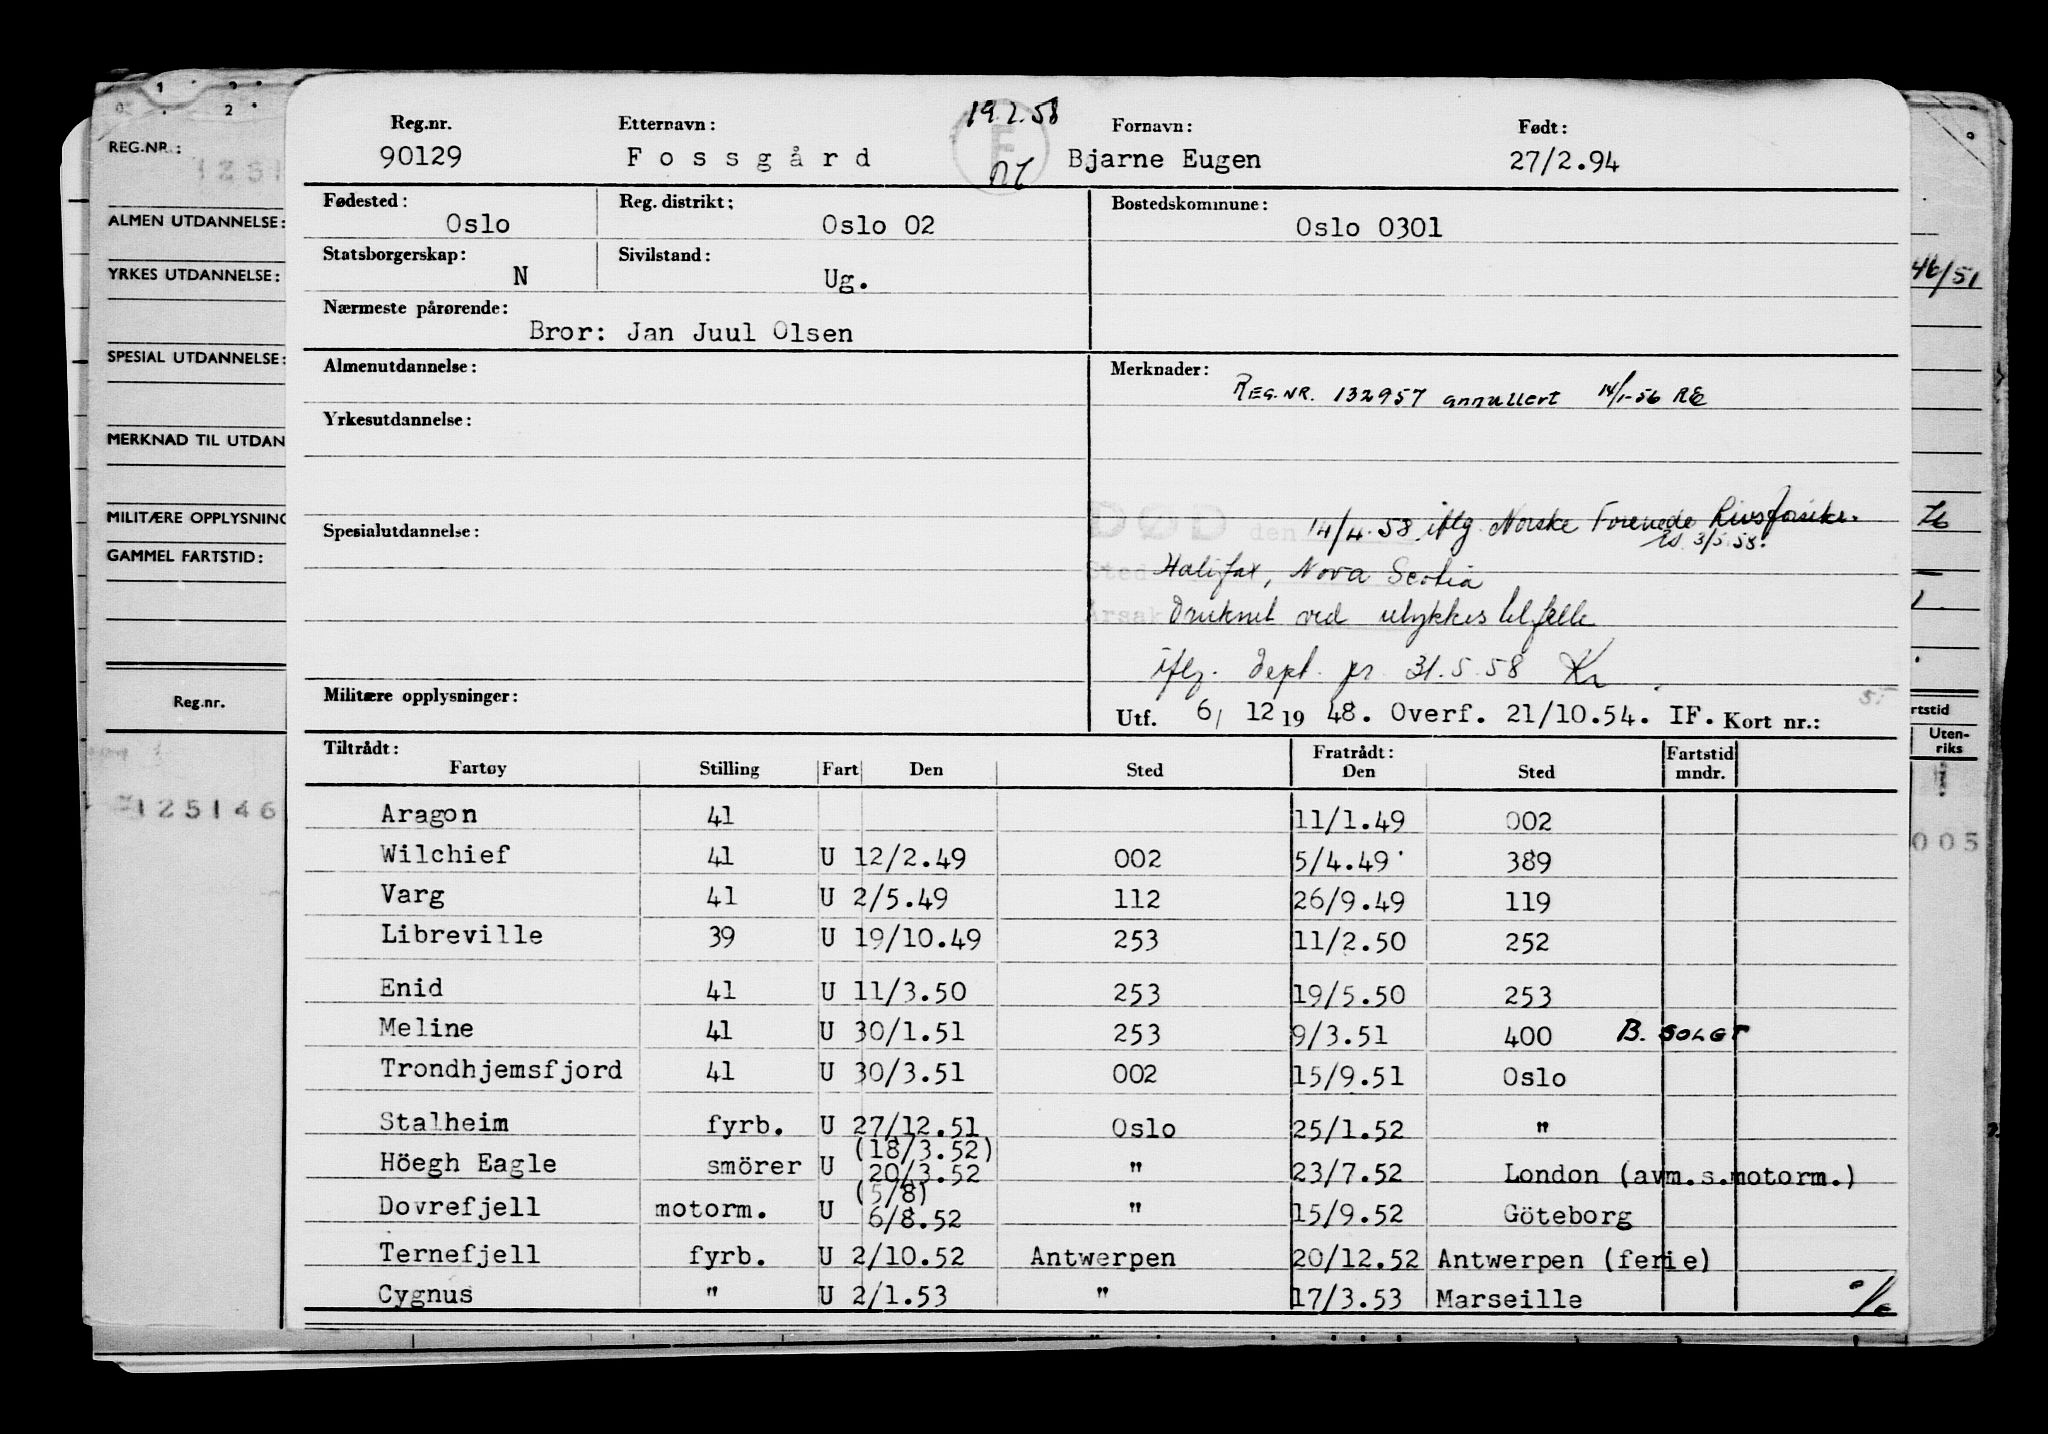 19.2.58
Reg.nr. Etternavn: Fornavn: Født:
90129 Fossgård F Bjarne Eugen 27/2.94
Fødested: Reg. distrikt: Bostedskommune:
Oslo Oslo 02 Oslo 0301
Statsborgerskap: Sivilstand:
N Ug.
Nærmeste pårørende:
Bror: Jan Juul Olsen
Almenutdannelse: Merknader:
REG.NR. 132957 annullert 14/1-56 RE
Yrkesutdannelse:
Spesialutdannelse: DØD den 14/4.58 iflg Norske Forenede Livsforsikr.
3/5.58.
Sted Halifax, Nova Scotia
Årsak Druknet ved ulykkestilfelle
iflg. dept. pr 31.5.58 Kr
Militære opplysninger:
Utf. 6/ 12 19 48. Overf. 21/10.54. IF. Kort nr.:
Tiltrådt: Fratrådt: Fartstid
Fartøy Stilling Fart Den Sted Den Sted mndr.
Aragon 41 11/1.49 002
Wilchief 41 U 12/2.49 002 5/4.49 389
Varg 41 U 2/5.49 112 26/9.49 119
Libreville 39 U 19/10.49 253 11/2.50 252
Enid 41 U 11/3.50 253 19/5.50 253
Meline 41 U 30/1.51 253 9/3.51 400 B. SOLGT
Trondhjemsfjord 41 U 30/3.51 002 15/9.51 Oslo
Stalheim fyrb. U 27/12.51 Oslo 25/1.52 "
(18/3.52)
Höegh Eagle smörer U 20/3.52 " 23/7.52 London (avm.s.motorm.)
(5/8)
Dovrefjell motorm. U 6/8.52 " 15/9.52 Göteborg
Ternefjell fyrb. U 2/10.52 Antwerpen 20/12.52 Antwerpen (ferie)
Cygnus " U 2/1.53 " 17/3.53 Marseille
REG.NR.:
ALMEN UTDANNELSE:
YRKES UTDANNELSE:
SPESIAL UTDANNELSE:
MERKNAD TIL UTDAN
MILITÆRE OPPLYSNING
GAMMEL FARTSTID:
Reg.nr.
125146
46/51
rtstid
Uten-
riks
005